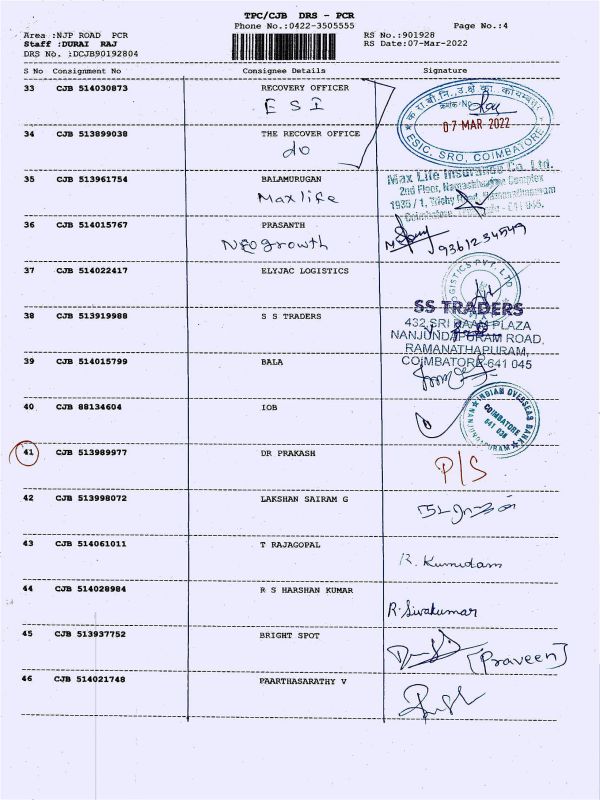 TPC/CJB DRS - PCR
Phone No.:0422-3505555 Page No.:4
Area :NJP ROAD PCR RS No.:901928
Staff :DURAI RAJ RS Date:07-Mar-2022
DRS No. :DCJB90192804
S No Consignment No Consignee Details Signature
33 CJB 514030873 RECOVERY OFFICER
ESI
07 MAR 2022
ESIC, SRO, COIMBATORE
34 CJB 513899038 THE RECOVER OFFICE
do
35 CJB 513961754 BALAMURUGAN
Maxlife
Max Life Insurance Co. Ltd.
2nd Floor, Namashivaya Complex
1935 / 1, Trichy Road, Ramanathapuram
Coimbatore, - 641 045.
36 CJB 514015767 PRASANTH
Neogrowth
9361234549
37 CJB 514022417 ELYJAC LOGISTICS
LOGISTICS PVT. LTD
38 CJB 513919988 S S TRADERS
SS TRADERS
432, SRI RAAM PLAZA
NANJUNDAPURAM ROAD,
RAMANATHAPURAM,
COIMBATORE-641 045
39 CJB 514015799 BALA
40 CJB 88134604 IOB
INDIAN OVERSEAS BANK
COIMBATORE
641 036
NANJUNDAPURAM
41 CJB 513989977 DR PRAKASH
P/S
42 CJB 513998072 LAKSHAN SAIRAM G
43 CJB 514061011 T RAJAGOPAL
R. Kumudam
44 CJB 514028984 R S HARSHAN KUMAR
R. Sivakumar
45 CJB 513937752 BRIGHT SPOT
[Praveen]
46 CJB 514021748 PAARTHASARATHY V